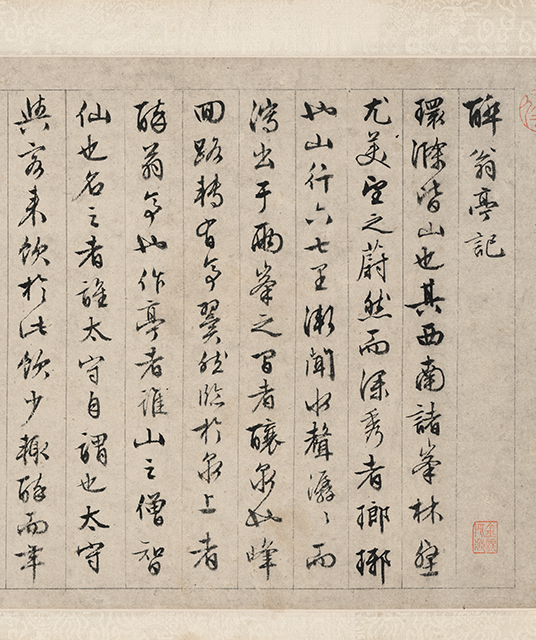 醉翁亭記
環滁皆山也其西南諸峯林壑
尤美望之蔚然而深秀者瑯琊
也山行六七里漸聞水聲潺〻而
瀉出于兩峯之間者釀泉也峰
回路轉有亭翼然臨於泉上者
醉翁亭也作亭者誰山之僧智
仙也名之者誰太守自謂也太守
與客來飲於此飲少輒醉而年